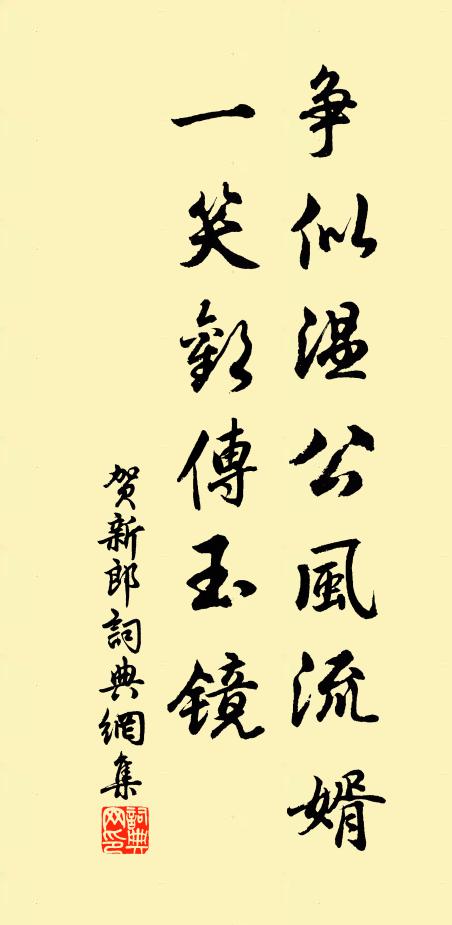 争似温公風流婿
一笑歡傳玉鏡
贺新郎詞典網集
詞典網印